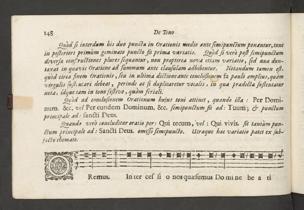 148 De Tono
Quòd si interdum bis duo puncta in Orationis medio ante semipunctum ponantur, tunc
in posteriori primùm geminato puncto fit prima variatio. Quòd si verò post semipunctum
diversa constructiones plures sequantur, non propterea nova etiam variatio, sed una dun-
taxat in quavis Oratione ad summum ante clausulam adhibentur. Notandum tamen est
quòd circa finem Orationis, seu in ultima dictione ante conclusionem fit paulò amplior, quàm
virgula sustentatio debeat, perinde ac si duplicaretur vocalis, in qua praedicta sustentatur
nota: idque tam in tono festivo, quàm feriali.
Quod ad conclusionem Orationum hujus toni attinet, quando est ista: Per Domi-
num. &c. vel Per eundem Dominum. &c. semipunctum fit ad: Tuum; & punctum
principale ad: sancti Deus.
Quando verò concluditur oratio per: Qui tecum, vel: Qui vivis. fit tantùm pun-
ctum principale ad: Sancti Deus. omisso semipuncto. Utraque haec variatio patet ex sub-
jecto themate.
Remus. Inter ces si o nos quæsumus Do mi ne be a ti